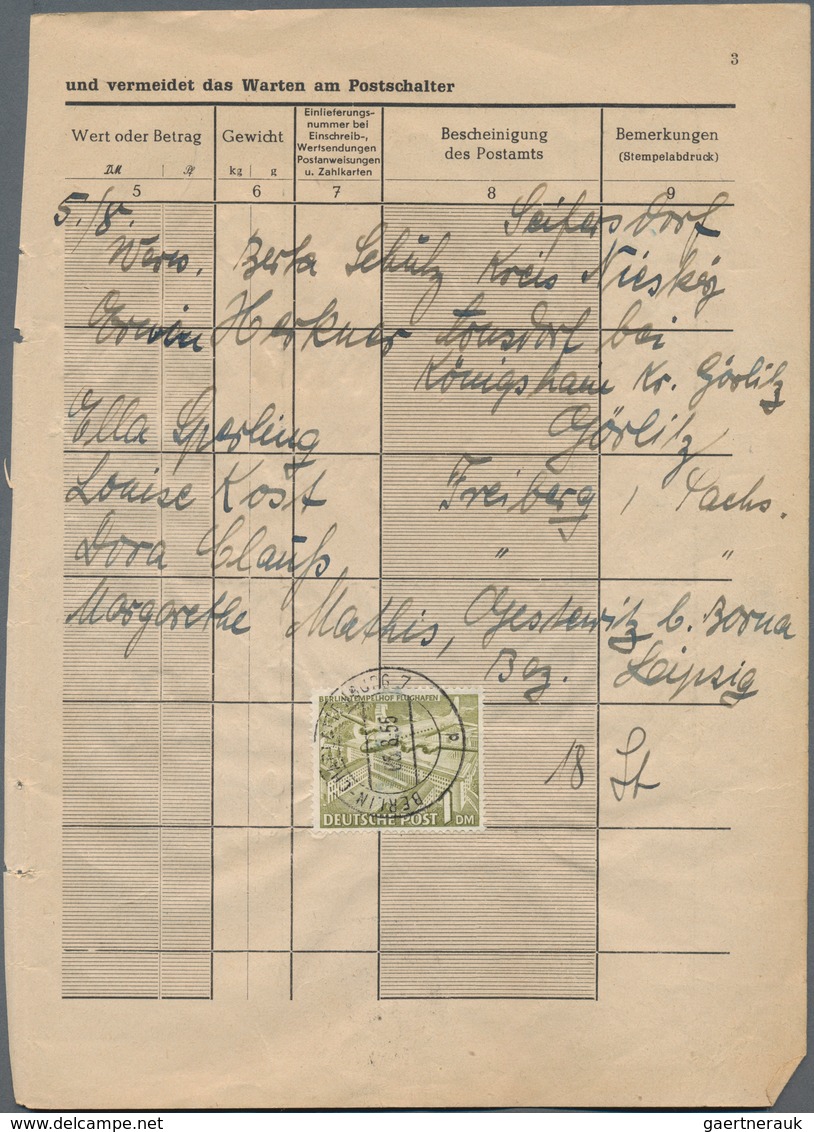 3
und vermeidet das Warten am Postschalter
Wert oder Betrag
DM Pf
Gewicht
kg g
Einlieferungs-
nummer bei
Einschreib-,
Wertsendungen
Postanweisungen
u. Zahlkarten
Bescheinigung
des Postamts
Bemerkungen
(Stempelabdruck)
5 6 7 8 9
5./8. Seifersdorf
Berta Schulz Kreis Niesky
Erwin Herkner bei
Königshain Kr. Görlitz
Ella Sperling Görlitz,
Louise Kost Freiberg, Sachs.
Dora Clauß " "
Margarethe Mathis, Gestewitz b. Borna
Bez. Leipzig
BERLIN-TEMPELHOF FLUGHAFEN
BERLIN-
8.55
a
DEUTSCHE POST 1 DM
18 St
delcampe.net
gaertnerauk